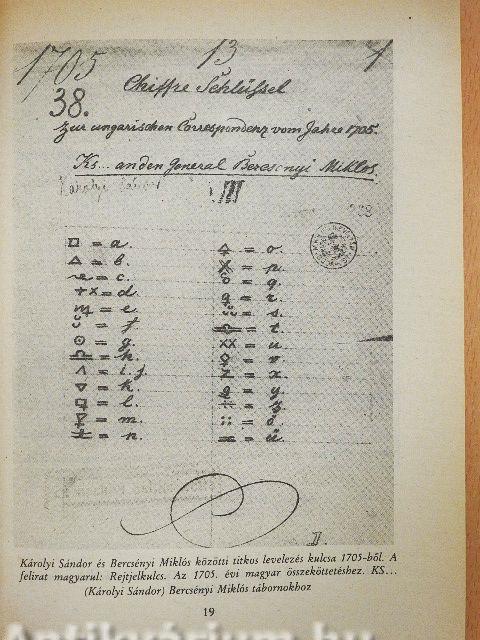 1705 13 1
38.
Chiffre Schlüssel
zur ungarischen Correspondenz vom Jahre 1705.
Ks... an den General Bercsenyi Miklos.
Károlyi Sándor
III
= a.
= b.
= c.
+ x = d.
= e.
= f.
= g.
= h.
= i. j.
= k.
= l.
= m.
= n.
= o.
= p.
= q.
= r.
= s.
= t.
xx = u.
= v.
= x.
= y.
= z.
:: = ö.
= ü.
II.
Károlyi Sándor és Bercsényi Miklós közötti titkos levelezés kulcsa 1705-ből. A
felirat magyarul: Rejtjelkulcs. Az 1705. évi magyar összeköttetéshez. KS...
(Károlyi Sándor) Bercsényi Miklós tábornokhoz
19
Antikvárium.hu